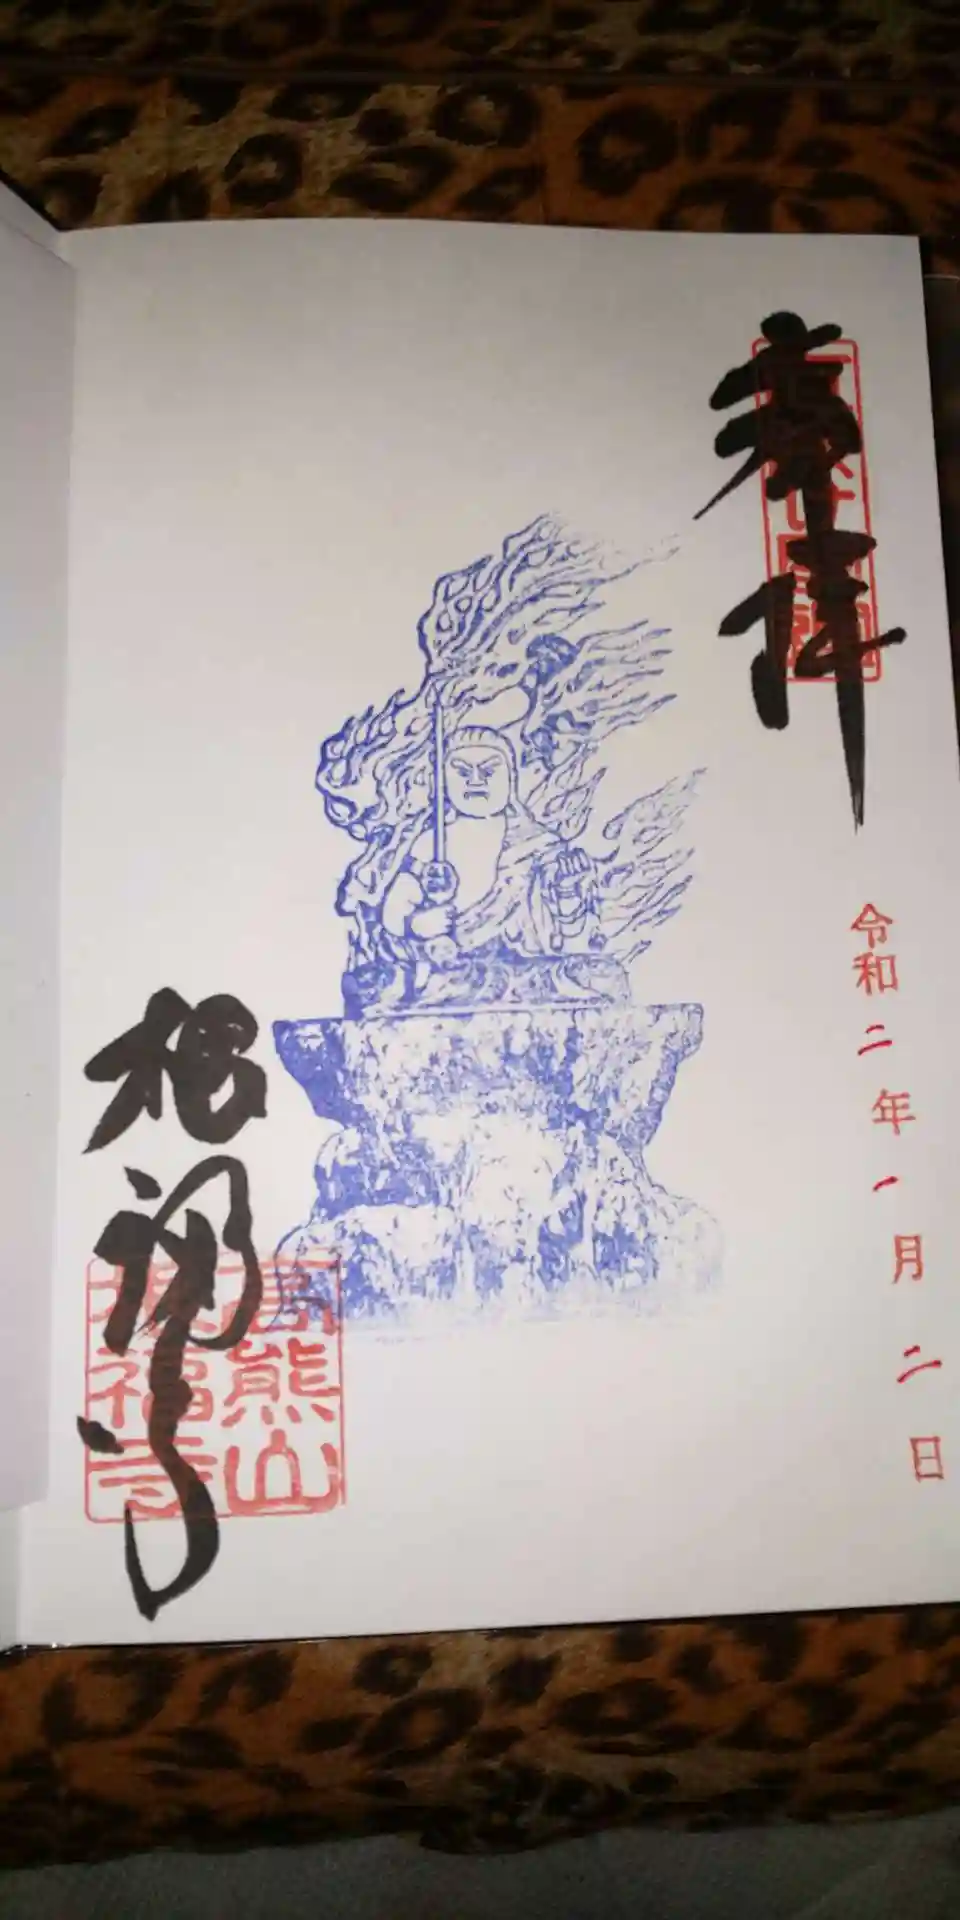 奉拝
令和二年一月二日
根福寺
高熊山
根福寺